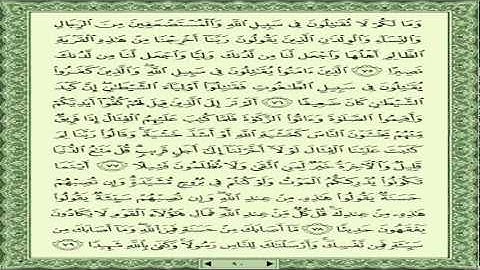 وَمَا لَكُمْ لَا تُقَٰتِلُونَ فِى سَبِيلِ ٱللَّهِ وَٱلْمُسْتَضْعَفِينَ مِنَ ٱلرِّجَالِ
وَٱلنِّسَآءِ وَٱلْوِلْدَٰنِ ٱلَّذِينَ يَقُولُونَ رَبَّنَآ أَخْرِجْنَا مِنْ هَٰذِهِ ٱلْقَرْيَةِ
ٱلظَّالِمِ أَهْلُهَا وَٱجْعَل لَّنَا مِن لَّدُنكَ وَلِيًّا وَٱجْعَل لَّنَا مِن لَّدُنكَ
نَصِيرًا ٧٥ ٱلَّذِينَ ءَامَنُوا۟ يُقَٰتِلُونَ فِى سَبِيلِ ٱللَّهِ وَٱلَّذِينَ كَفَرُوا۟
يُقَٰتِلُونَ فِى سَبِيلِ ٱلطَّٰغُوتِ فَقَٰتِلُوٓا۟ أَوْلِيَآءَ ٱلشَّيْطَٰنِ إِنَّ كَيْدَ
ٱلشَّيْطَٰنِ كَانَ ضَعِيفًا ٧٦ أَلَمْ تَرَ إِلَى ٱلَّذِينَ قِيلَ لَهُمْ كُفُّوٓا۟ أَيْدِيَكُمْ
وَأَقِيمُوا۟ ٱلصَّلَوٰةَ وَءَاتُوا۟ ٱلزَّكَوٰةَ فَلَمَّا كُتِبَ عَلَيْهِمُ ٱلْقِتَالُ إِذَا فَرِيقٌ
مِّنْهُمْ يَخْشَوْنَ ٱلنَّاسَ كَخَشْيَةِ ٱللَّهِ أَوْ أَشَدَّ خَشْيَةً وَقَالُوا۟ رَبَّنَا لِمَ
كَتَبْتَ عَلَيْنَا ٱلْقِتَالَ لَوْلَآ أَخَّرْتَنَآ إِلَىٰٓ أَجَلٍ قَرِيبٍ قُلْ مَتَٰعُ ٱلدُّنْيَا
قَلِيلٌ وَٱلْءَاخِرَةُ خَيْرٌ لِّمَنِ ٱتَّقَىٰ وَلَا تُظْلَمُونَ فَتِيلًا ٧٧ أَيْنَمَا
تَكُونُوا۟ يُدْرِككُّمُ ٱلْمَوْتُ وَلَوْ كُنتُمْ فِى بُرُوجٍ مُّشَيَّدَةٍ وَإِن تُصِبْهُمْ
حَسَنَةٌ يَقُولُوا۟ هَٰذِهِۦ مِنْ عِندِ ٱللَّهِ وَإِن تُصِبْهُمْ سَيِّئَةٌ يَقُولُوا۟
هَٰذِهِۦ مِنْ عِندِكَ قُلْ كُلٌّ مِّنْ عِندِ ٱللَّهِ فَمَالِ هَٰٓؤُلَآءِ ٱلْقَوْمِ لَا يَكَادُونَ
يَفْقَهُونَ حَدِيثًا ٧٨ مَّآ أَصَابَكَ مِنْ حَسَنَةٍ فَمِنَ ٱللَّهِ وَمَآ أَصَابَكَ مِن
سَيِّئَةٍ فَمِن نَّفْسِكَ وَأَرْسَلْنَٰكَ لِلنَّاسِ رَسُولًا وَكَفَىٰ بِٱللَّهِ شَهِيدًا ٧٩
٩٠